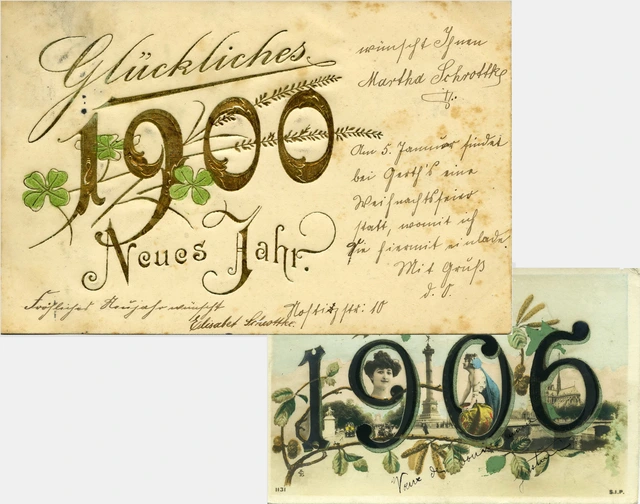 Glückliches
1900
Neues Jahr.
wünscht Ihnen
Martha Schrottke
Am 5. Januar findet
bei Gerth's eine
Weihnachtsfeier
statt, womit ich
Sie hiermit einlade.
Mit Gruß
d. O.
Fröhliches Neujahr wünscht
Elisabet Schrottke.
Nostizstr. 10
1906
1131
S.I.P.